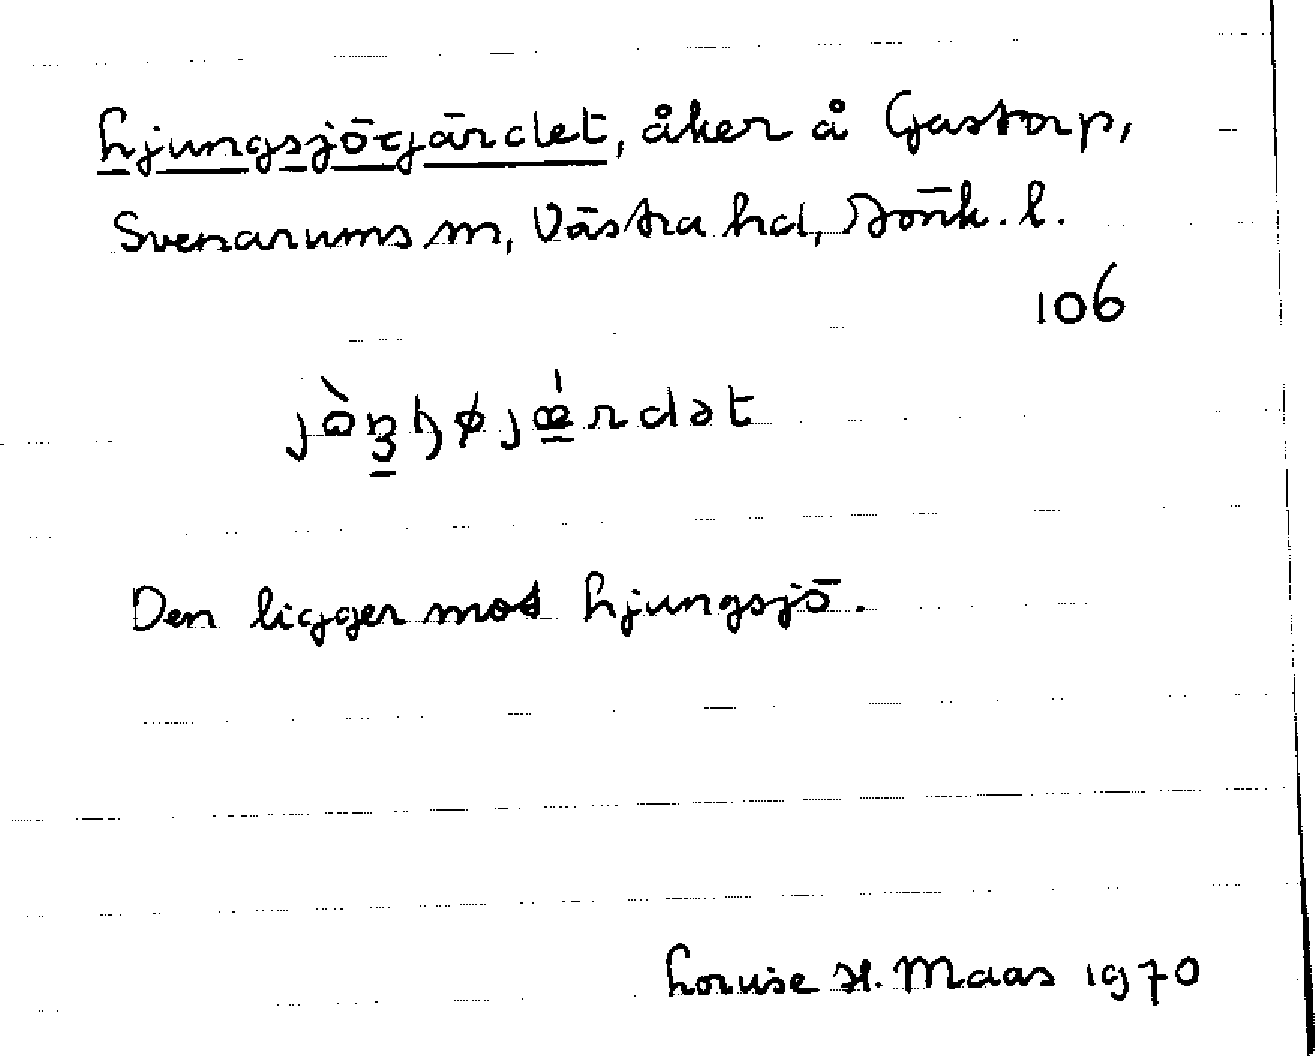 Ljungsjögärdet, åker å Gastorp,
Svenarums sn, Västra hd, Jönk. l.
106
jòŋɧøjǽrdət
Den ligger mot Ljungsjö.
Louise H. Maas 1970